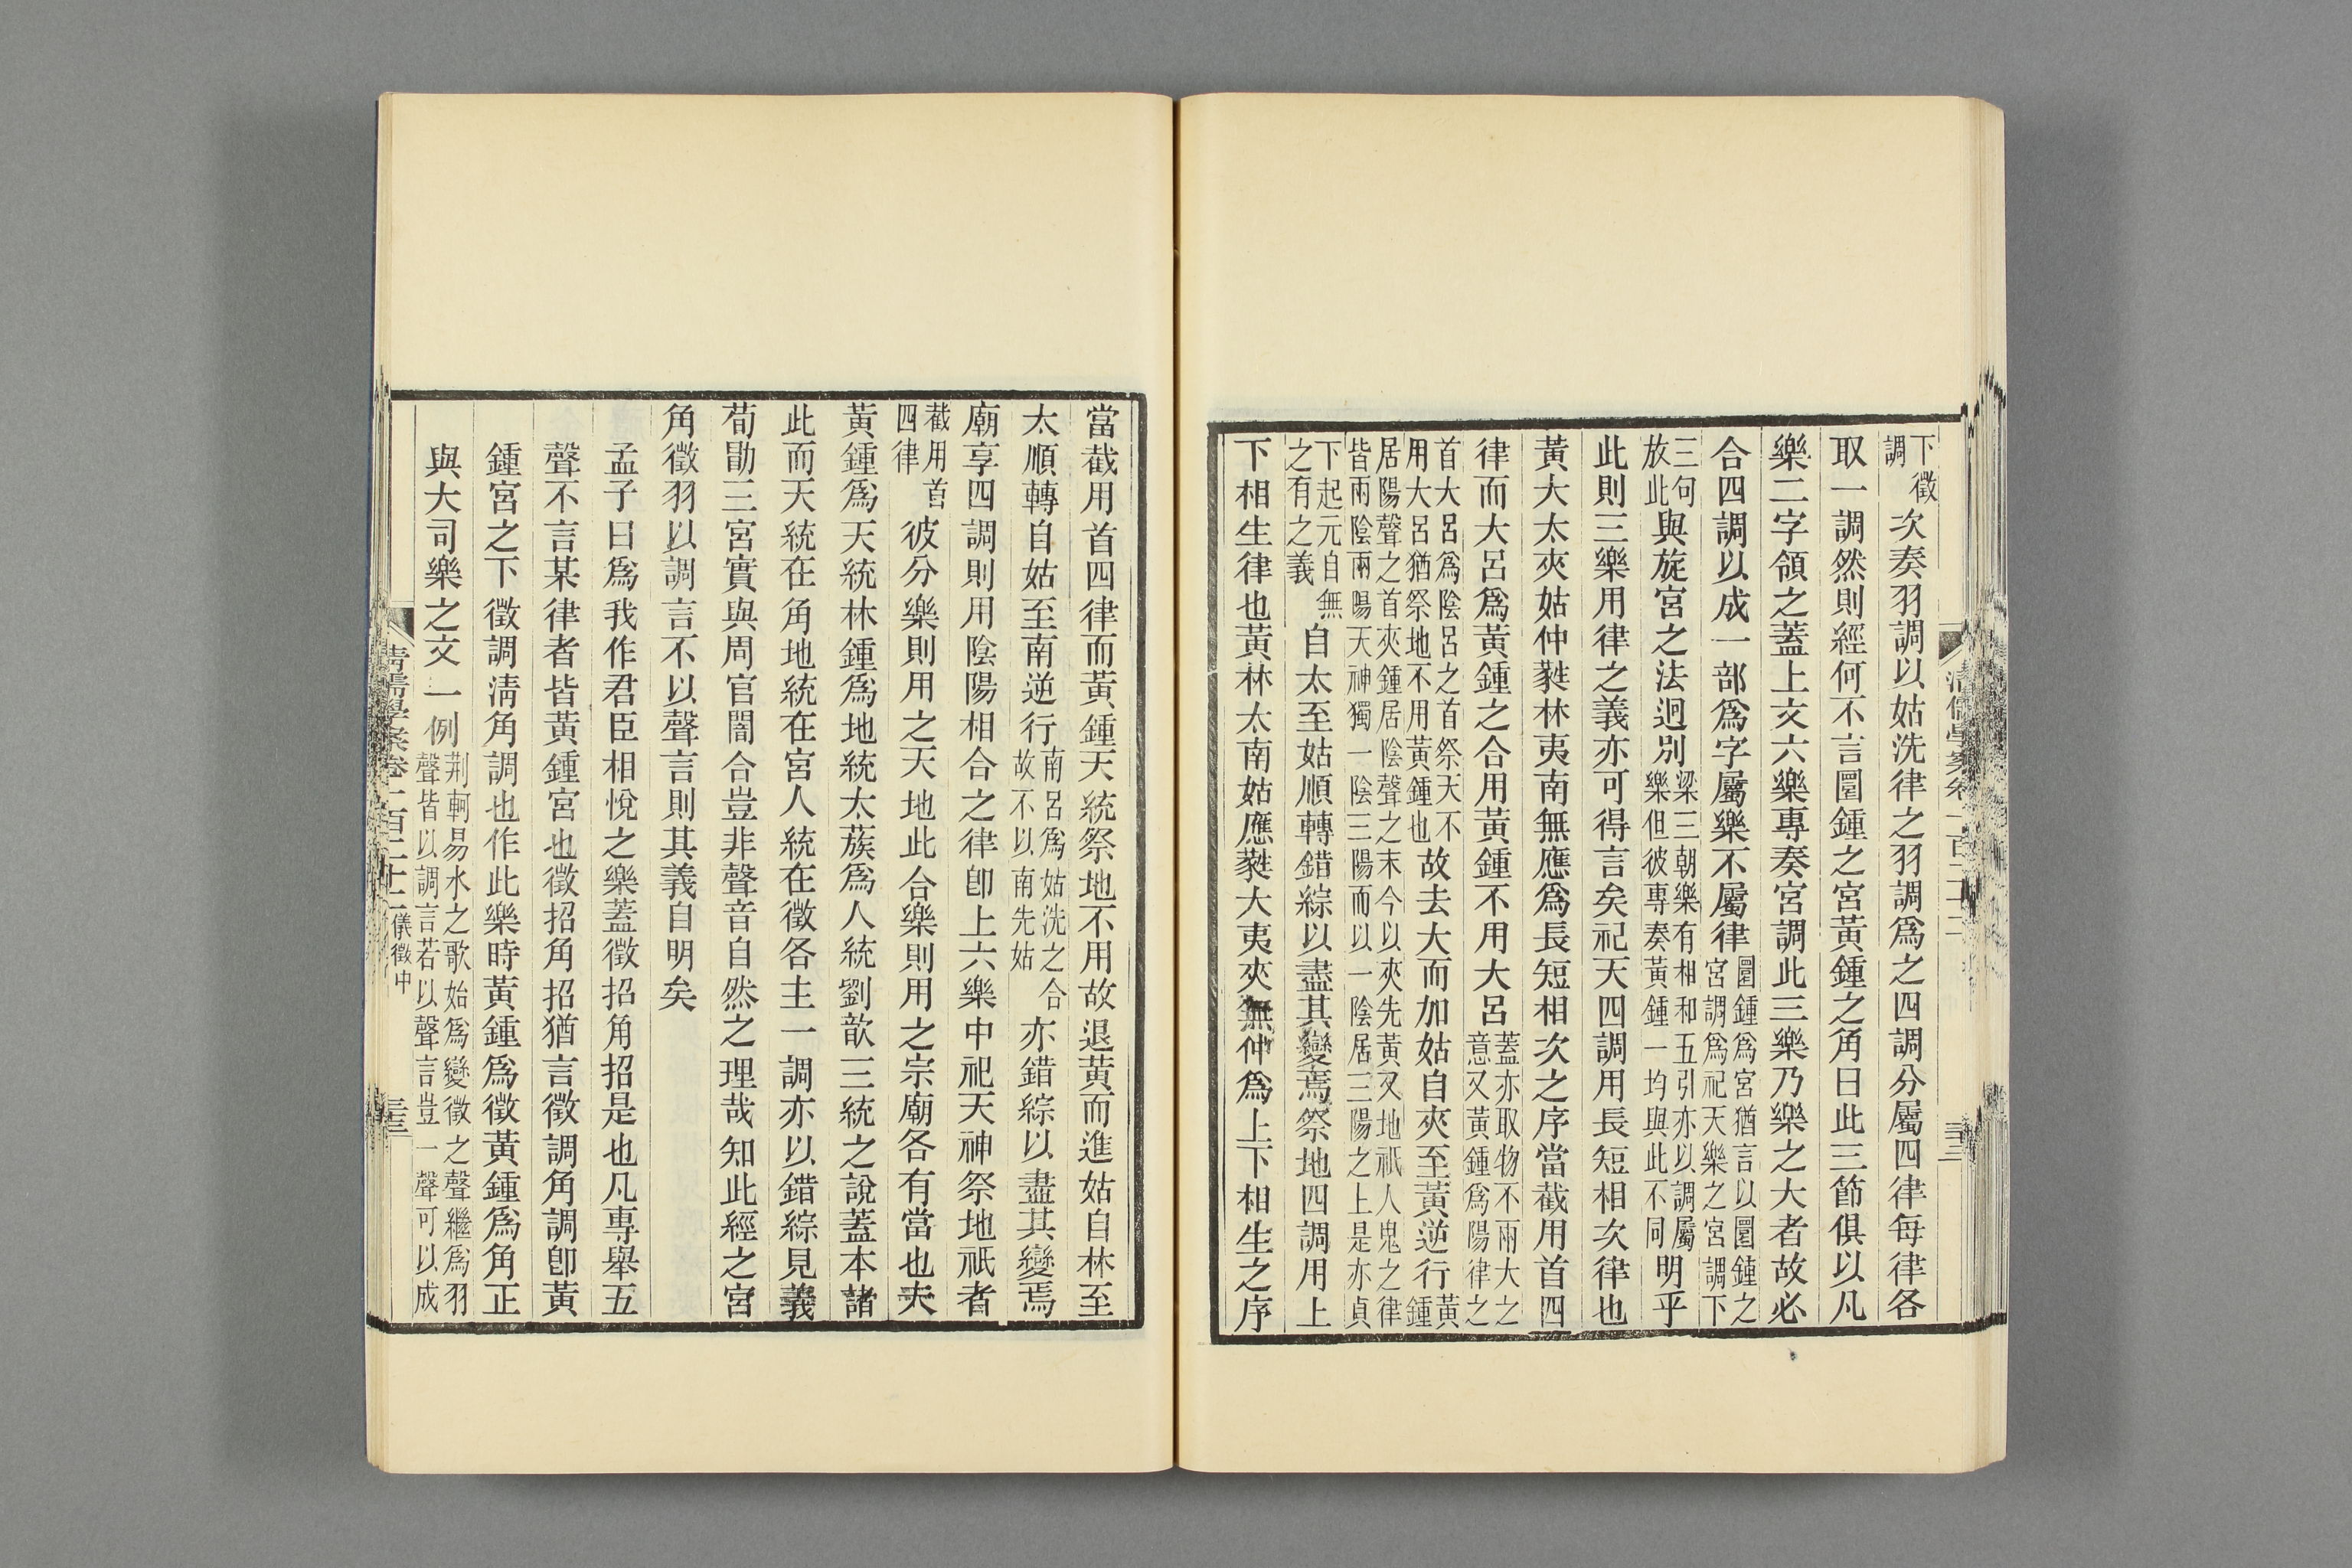 下徵調次奏羽調以姑洗律之羽調爲之四調分屬四律每律各
取一調然則經何不言圜鍾之宮黃鍾之角曰此三節俱以凡
樂二字領之蓋上文六樂專奏宮調此三樂乃樂之大者故必
合四調以成一部爲字屬樂不屬律圜鍾爲宮猶言以圜鍾之宮調爲祀天樂之宮調下
三句放此與旋宮之法迥別梁三朝樂有相和五引亦以調屬樂但彼專奏黃鍾一均與此不同明乎
此則三樂用律之義亦可得言矣祀天四調用長短相次律也
黃大太夾姑仲蕤林夷南無應爲長短相次之序當截用首四
律而大呂爲黃鍾之合用黃鍾不用大呂蓋亦取物不兩大之意又黃鍾爲陽律之
首大呂爲陰呂之首祭天不用大呂猶祭地不用黃鍾也故去大而加姑自夾至黃逆行黃鍾
居陽聲之首夾鍾居陰聲之末今以夾先黃又地祇人鬼之律皆兩陰兩陽天神獨一陰三陽而以一陰居三陽之上是亦貞
下起元自無之有之義自太至姑順轉錯綜以盡其變焉祭地四調用上
下相生律也黃林太南姑應蕤大夷夾無仲爲上下相生之序
清儒學案卷一百二十二
三十二
當截用首四律而黃鍾天統祭地不用故退黃而進姑自林至
太順轉自姑至南逆行南呂爲姑洗之合故不以南先姑亦錯綜以盡其變焉
廟享四調則用陰陽相合之律卽上六樂中祀天神祭地祇者
截用首四律彼分樂則用之天地此合樂則用之宗廟各有當也夫
黃鍾爲天統林鍾爲地統太蔟爲人統劉歆三統之說蓋本諸
此而天統在角地統在宮人統在徵各主一調亦以錯綜見義
荀勖三宮實與周官闇合豈非聲音自然之理哉知此經之宮
角徵羽以調言不以聲言則其義自明矣
孟子曰爲我作君臣相悅之樂蓋徵招角招是也凡專舉五
聲不言某律者皆黃鍾宮也徵招角招猶言徵調角調卽黃
鍾宮之下徵調淸角調也作此樂時黃鍾爲徵黃鍾爲角正
與大司樂之文一例荆軻易水之歌始爲變徵之聲繼爲羽聲皆以調言若以聲言豈一聲可以成
清儒學案卷一百二十二 儀徵中
三十三